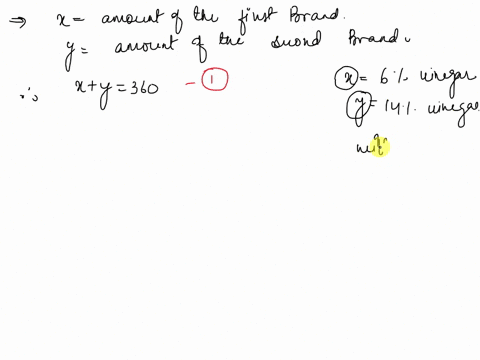 ⇒ x = amount of the first Brand.
y = amount of the second Brand.
∴ x+y=360 – ①
x = 6% vinegar
y = 14% vinegar